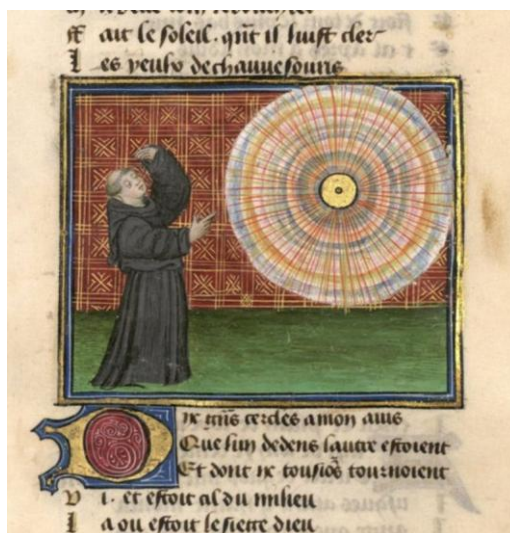 ait le soleil. qnt il luist cler
es yeulx de chauuesouris
ix grãs cercles a mon auis
Que lun dedens lautre estoient
Et dont ix tousiõs tournoient
V i. et estoit cil du milieu
L a ou estoit le siege dieu